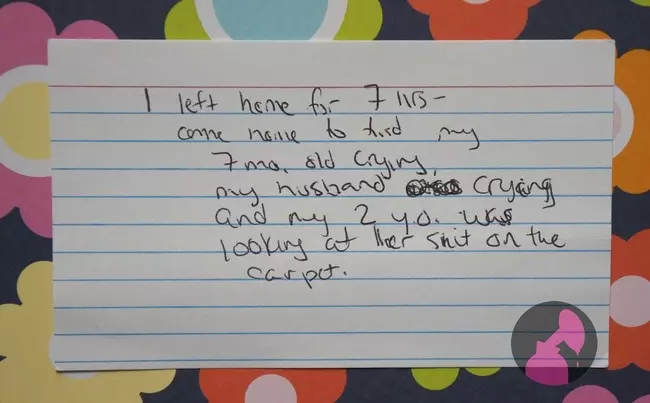 I left home for 7 hrs-
came home to find my
7 mo. old crying,
my husband crying
and my 2 y.o. was
looking at her shit on the
carpet.